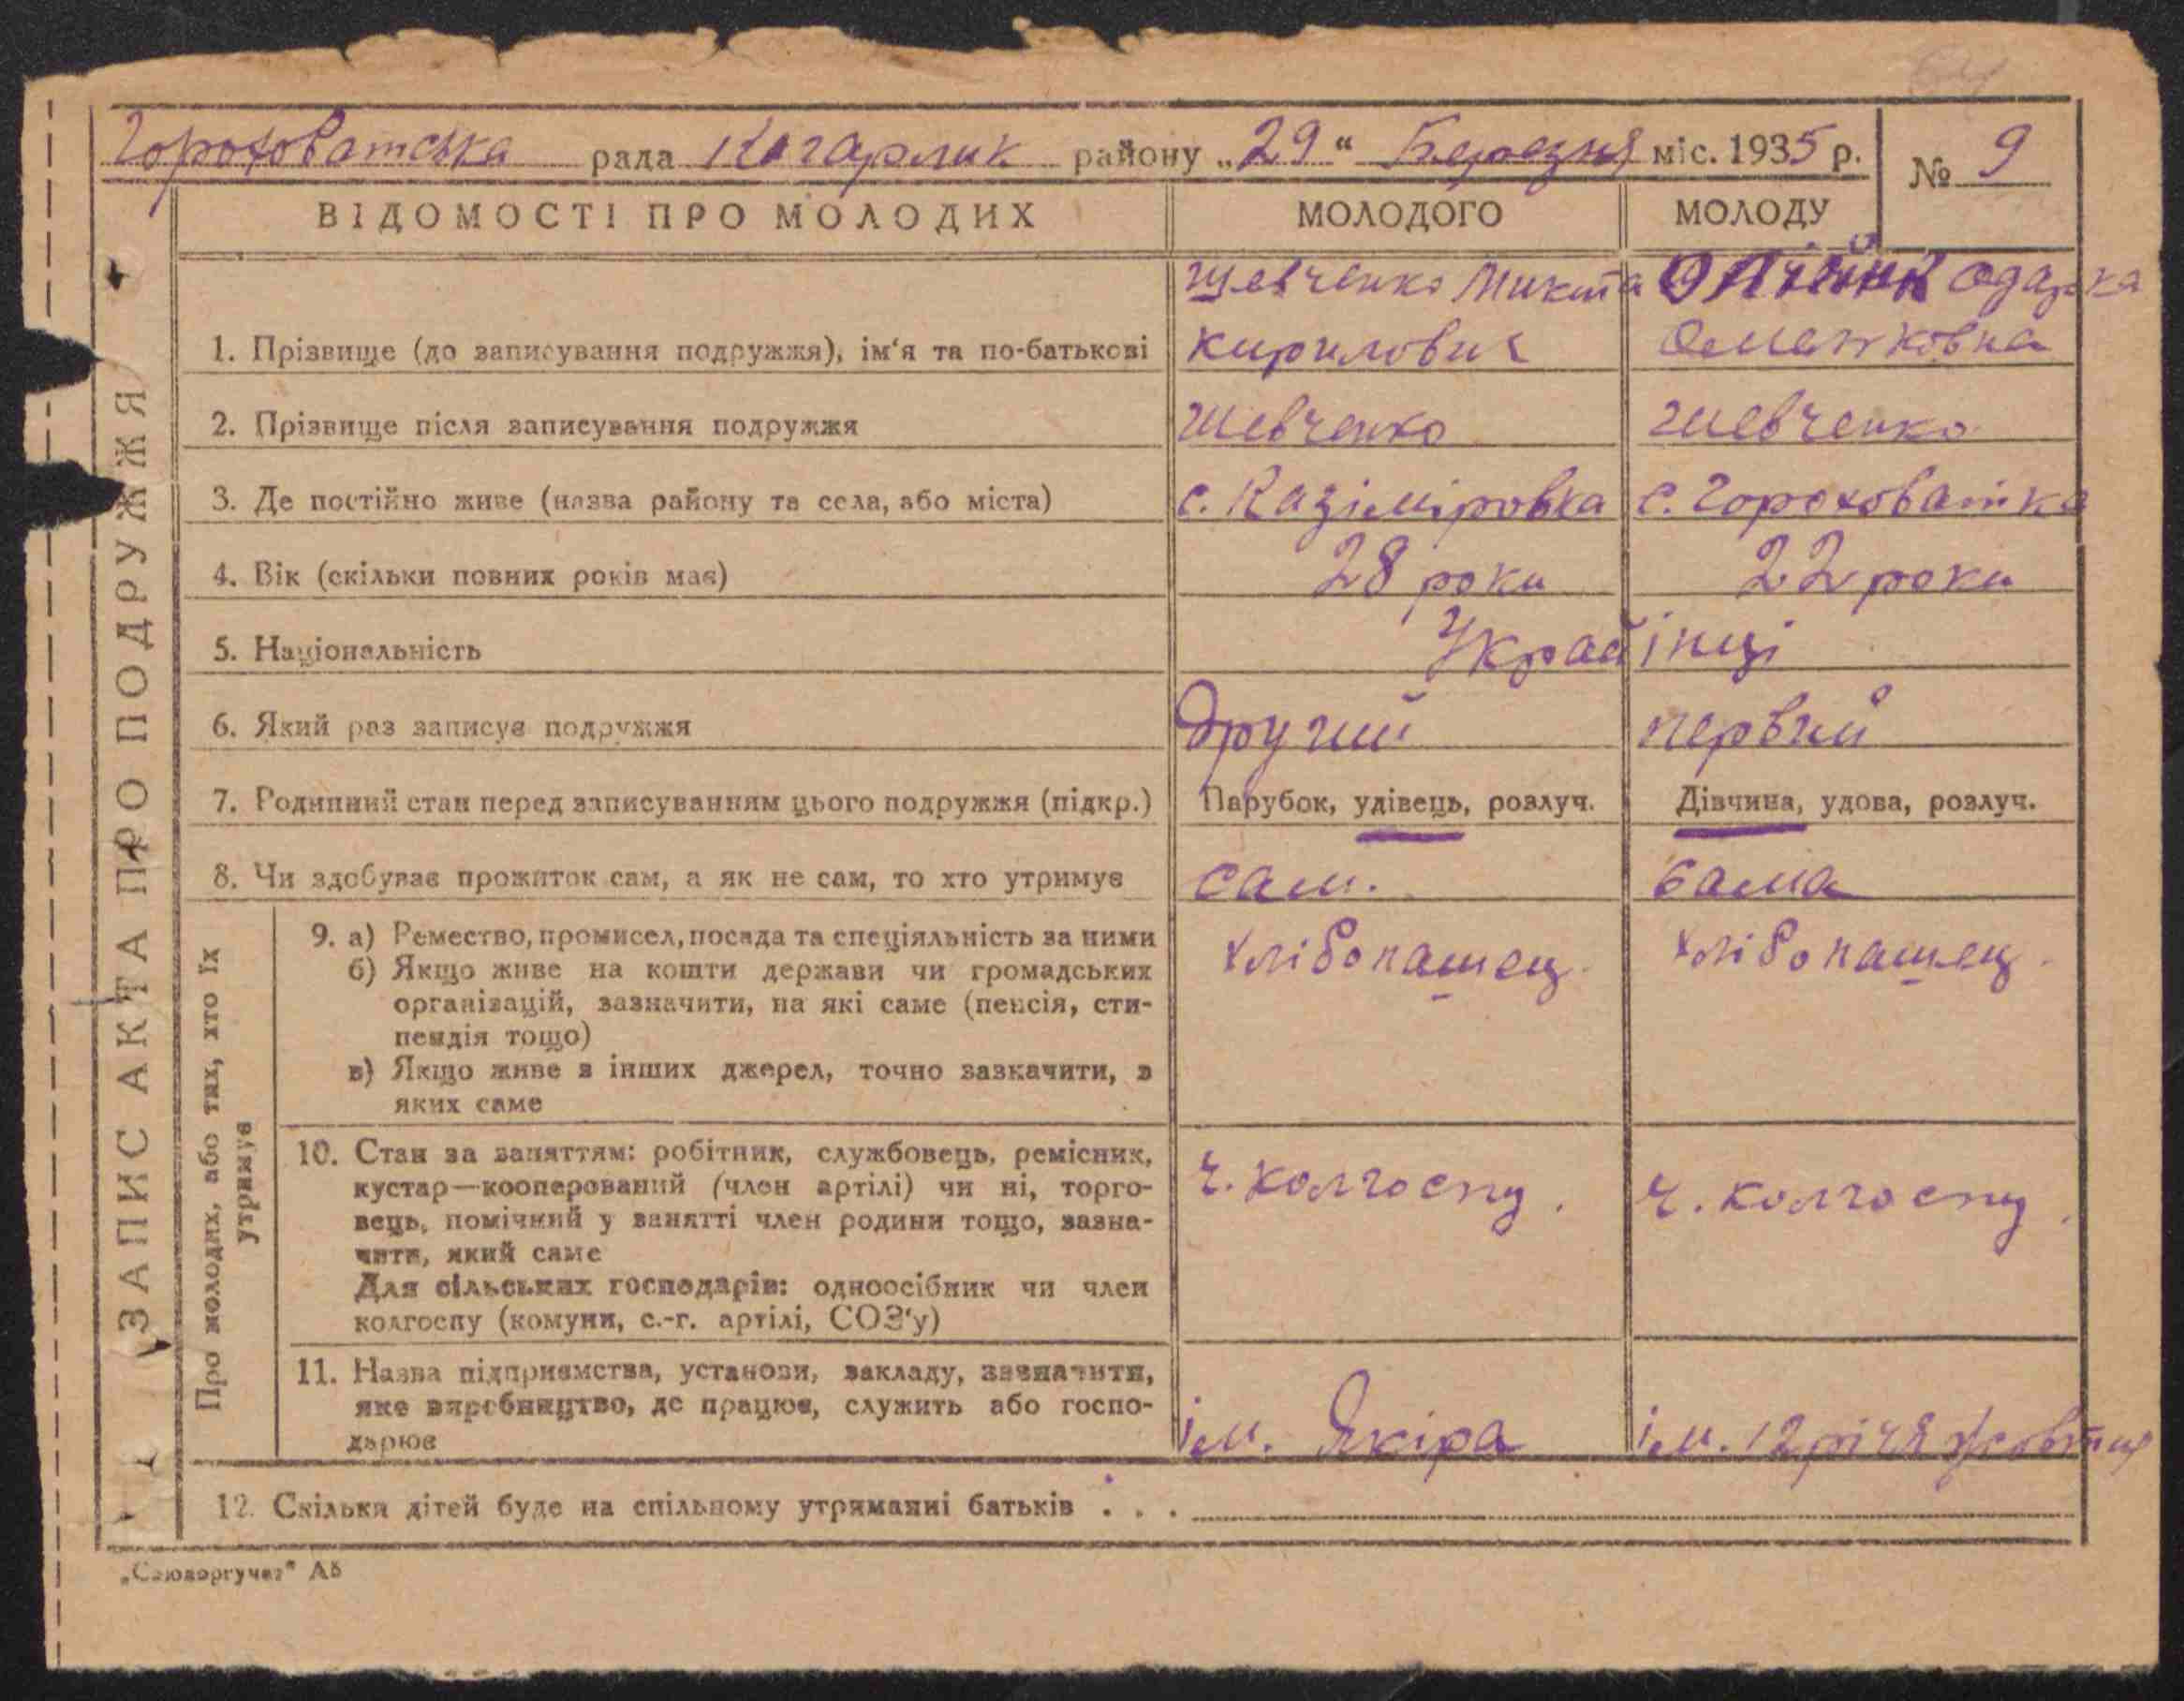 Гороховатська рада Кагарлик району „29“ Березня міс. 1935 р. № 9
ЗАПИС АКТА ПРО ПОДРУЖЖЯ
ВІДОМОСТІ ПРО МОЛОДИХ МОЛОДОГО МОЛОДУ
Шевченко Микита Олійник Одарка
1. Прізвище (до записування подружжя), ім‘я та по-батькові Кирилович
2. Прізвище після записування подружжя Шевченко Шевченко
3. Де постійно живе (назва району та села, або міста) с. Казіміровка с. Гороховатка
4. Вік (скільки повних років має) 28 роки 22 роки
5. Національність Украаїнці
6. Який раз записує подружжя другий первий
7. Родинний стан перед записуванням цього подружжя (підкр.) Парубок, удівець, розлуч. Дівчина, удова, розлуч.
8. Чи здобуває прожиток сам, а як не сам, то хто утримує сам. сама
Про молодих, або тих, хто їх
утримує
9. а) Ремество, промисел, посада та спеціяльність за ними хлібопашец. хлібопашец.
б) Якщо живе на кошти держави чи громадських
організацій, зазначити, на які саме (пенсія, сти-
пендія тощо)
в) Якщо живе з інших джерел, точно зазначити, з
яких саме
10. Стан за заняттям: робітник, службовець, ремісник,
кустар—кооперований (член артілі) чи ні, торго- ч. колгоспу. ч. колгоспу.
вець, помічний у занятті член родини тощо, зазна-
чити, який саме
Для сільських господарів: одноосібник чи член
колгоспу (комуни, с.-г. артілі, СОЗ‘у)
11. Назва підприємства, установи, закладу, зазначити,
яке виробництво, де працює, служить або госпо-
дарює ім. Якіра ім. 12 річя жовтня
12. Скільки дітей буде на спільному утриманні батьків . . .
„Союзоргучет“